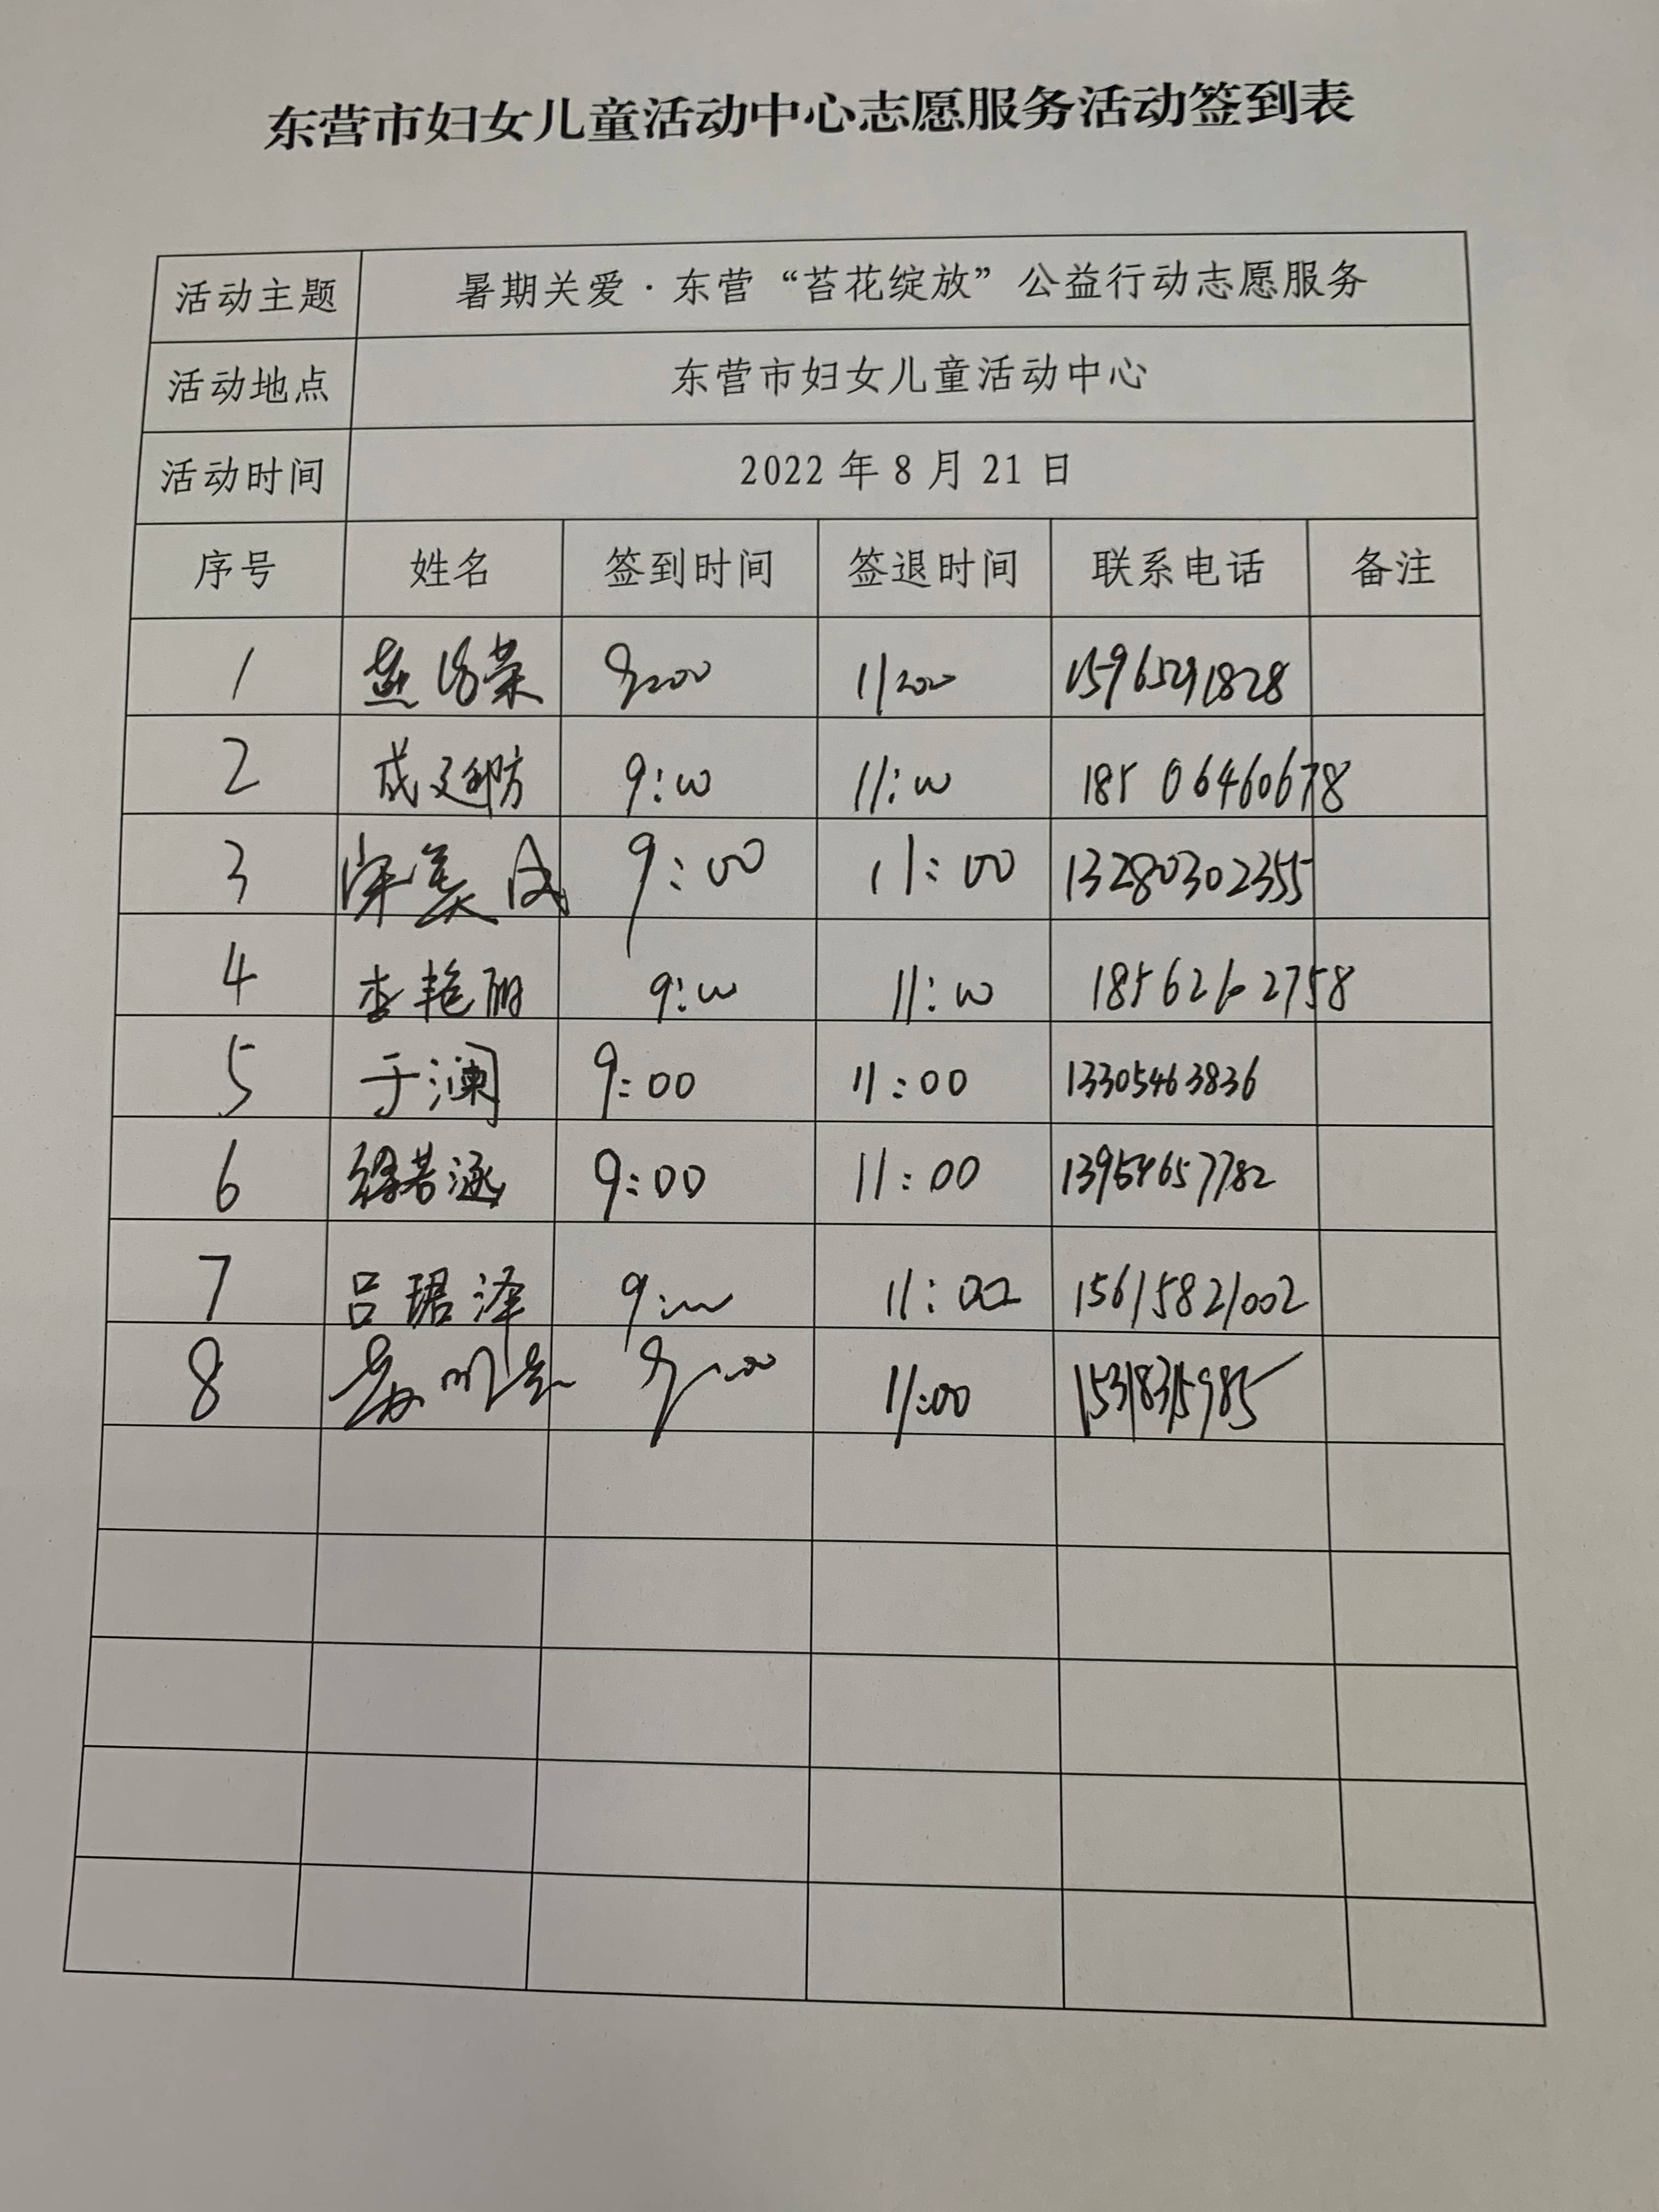 东营市妇女儿童活动中心志愿服务活动签到表
活动主题 暑期关爱·东营“苔花绽放”公益行动志愿服务
活动地点 东营市妇女儿童活动中心
活动时间 2022年8月21日
序号 姓名 签到时间 签退时间 联系电话 备注
1 9:00 11:00 15965291828
2 9:00 11:00 18506460678
3 9:00 11:00 13280302355
4 李艳丽 9:00 11:00
5 于澜 9:00 11:00 13305463836
6 徐若涵 9:00 11:00 13954657782
7 吕珺泽 9:00 11:00 15615821002
8 9:00 11:00 15318315985